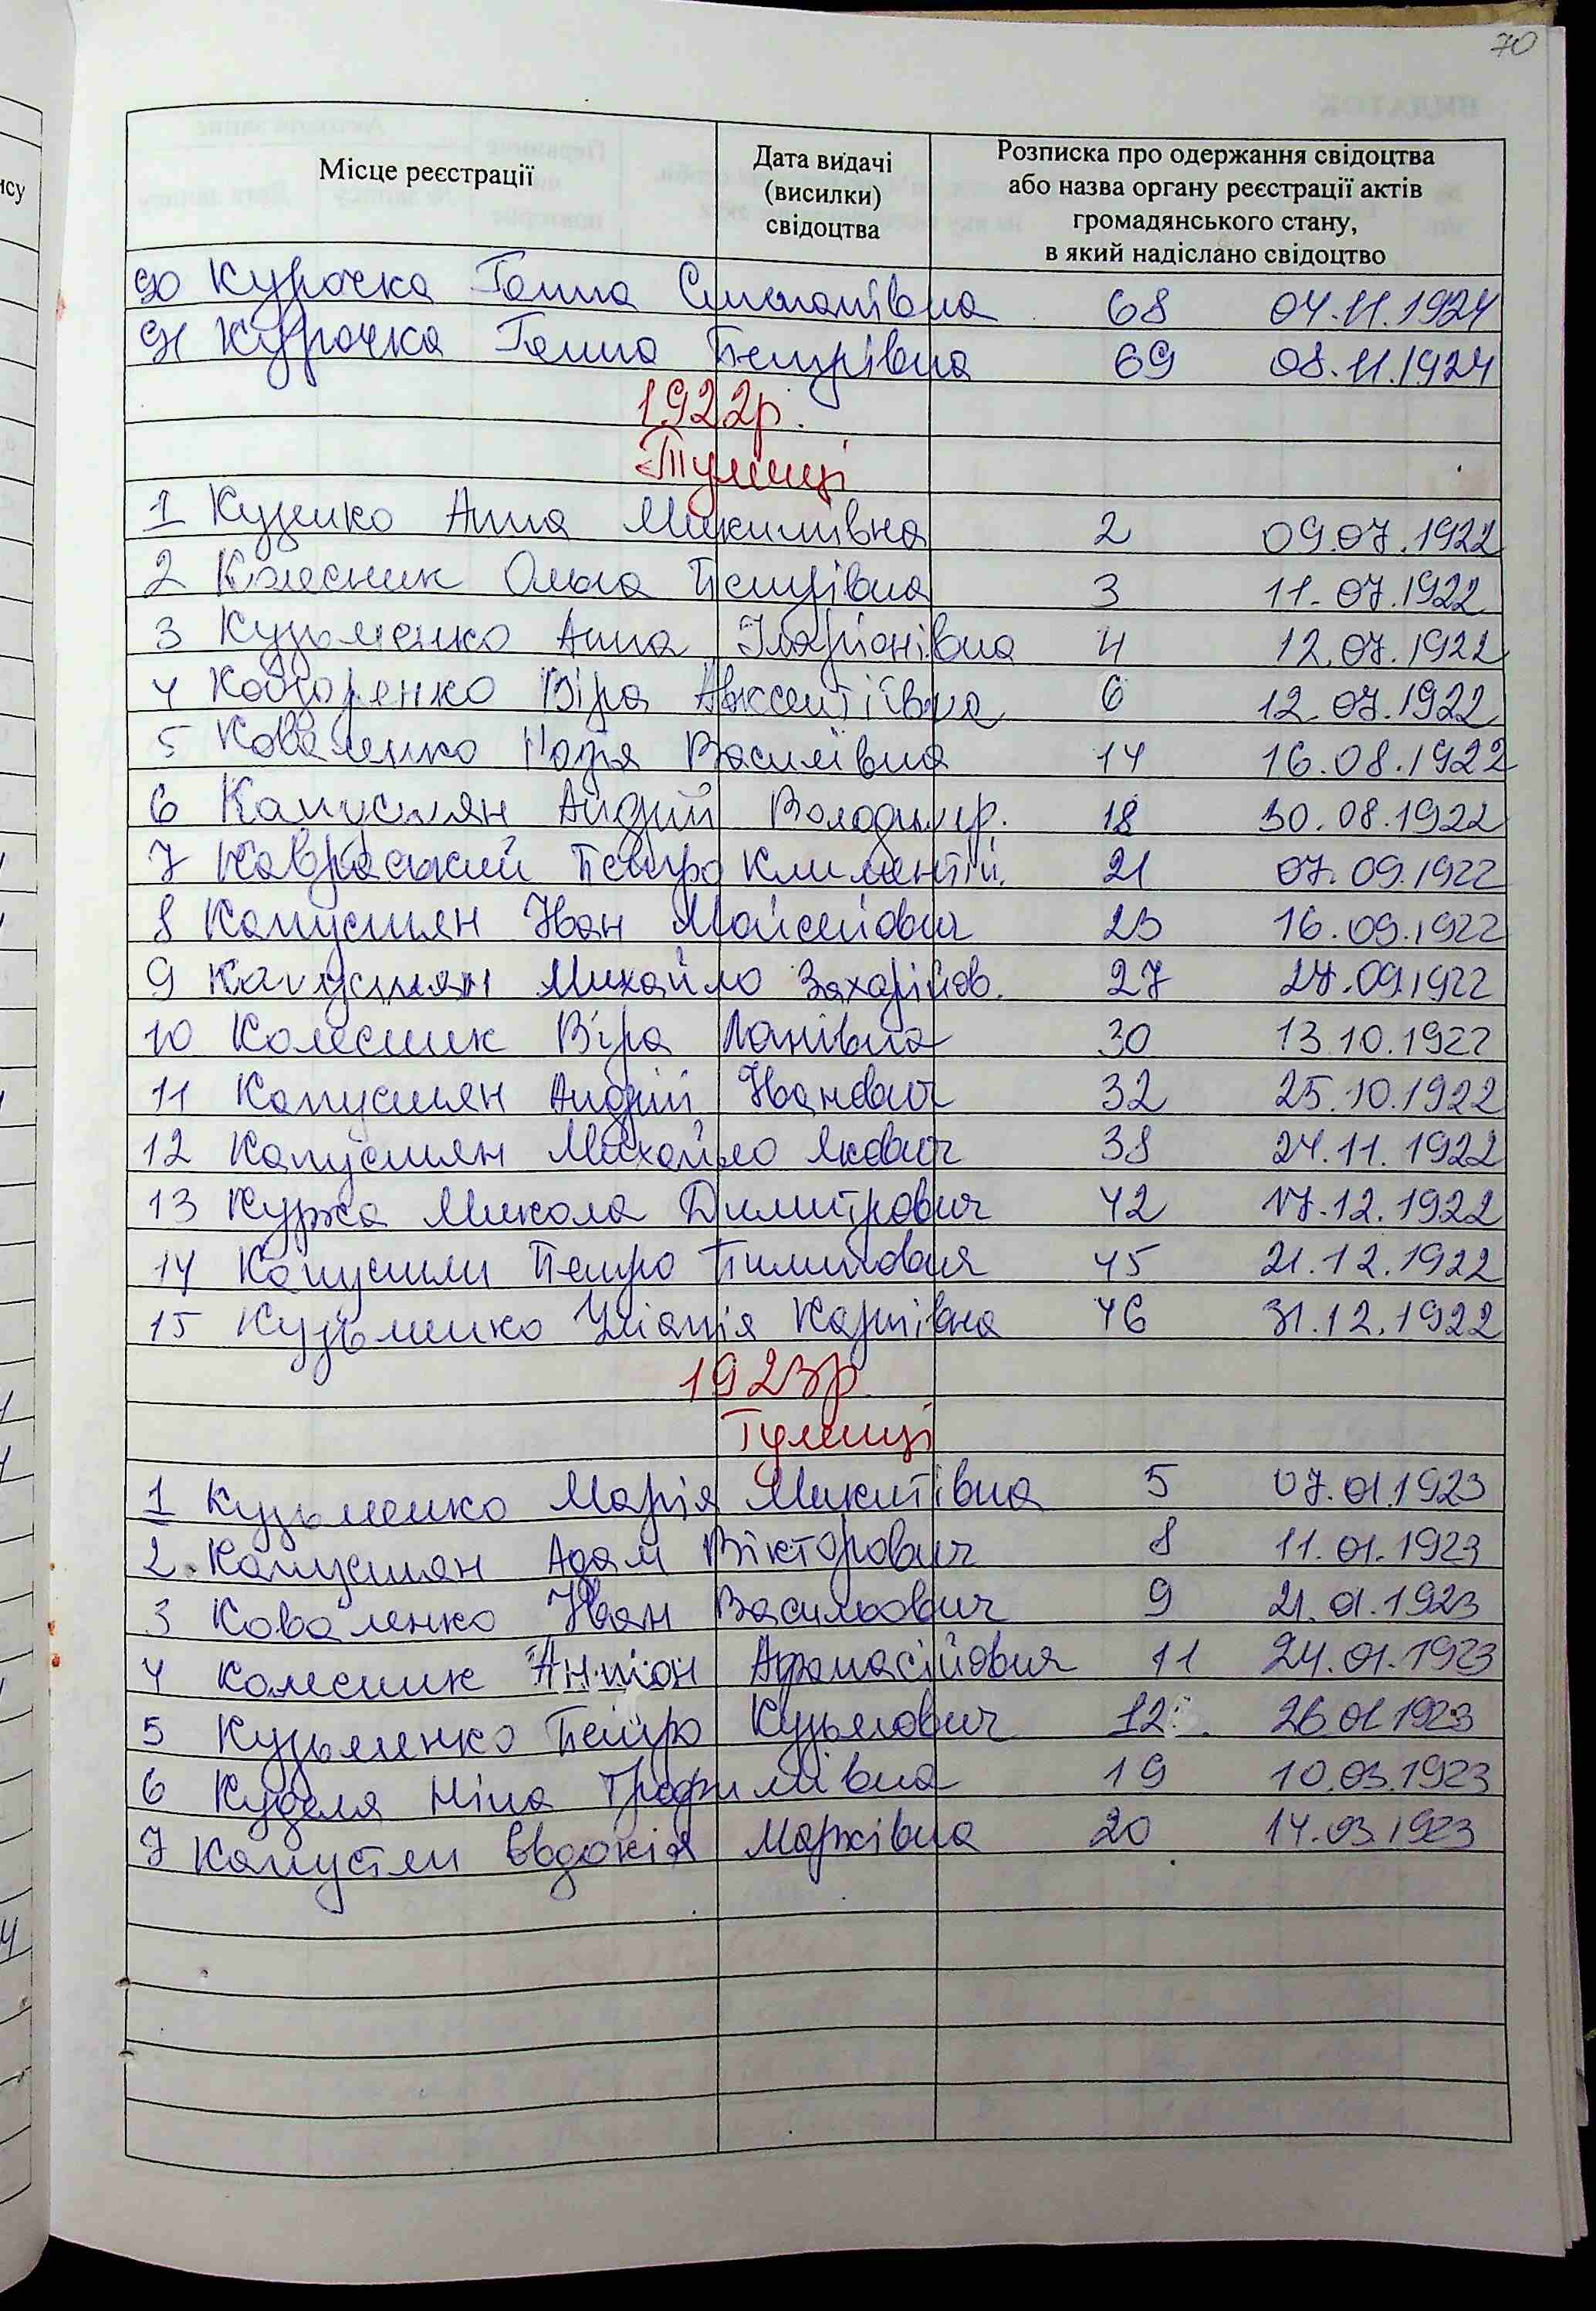 70
Місце реєстрації
Дата видачі
(висилки)
свідоцтва
Розписка про одержання свідоцтва
або назва органу реєстрації актів
громадянського стану,
в який надіслано свідоцтво
90 Курочка Ганна Степанівна 68 04.11.1924
91 Курочка Ганна Петрівна 69 08.11.1924
1922р.
Тулинці
1 Куценко Анна Микитівна 2 09.07.1922
2 Колесник Ольга Петрівна 3 11.07.1922
3 Кузьменко Анна Іларіонівна 4 12.07.1922
4 Віра Авксентіївна 6 12.07.1922
5 Коваленко Надія Василівна 14 16.08.1922
6 Капустян Андрій Володимир. 18 30.08.1922
7 Кавраський Петро Климентій. 21 07.09.1922
8 Капустян Іван Мойсейович 23 16.09.1922
9 Капустян Михайло Захарійов. 27 27.09.1922
10 Колесник Віра 30 13.10.1922
11 Капустян Андрій Іванович 32 25.10.1922
12 Капустян Михайло Якович 38 24.11.1922
13 Куржа Микола Димитрович 42 17.12.1922
14 Капустян Петро Пилипович 45 21.12.1922
15 Кузьменко Уліанія Карпівна 46 31.12.1922
1923р
Тулинці
1 Кузьменко Марія Микитівна 5 07.01.1923
2. Капустян Адам Вікторович 8 11.01.1923
3 Коваленко Іван Васильович 9 21.01.1923
4 Колесник Антон Афанасійович 11 24.01.1923
5 Кузьменко Петро Кузьмович 12 26.01.1923
6 Куделя Ніна Трофимівна 19 10.03.1923
7 Капустян Євдокія Марківна 20 14.03.1923